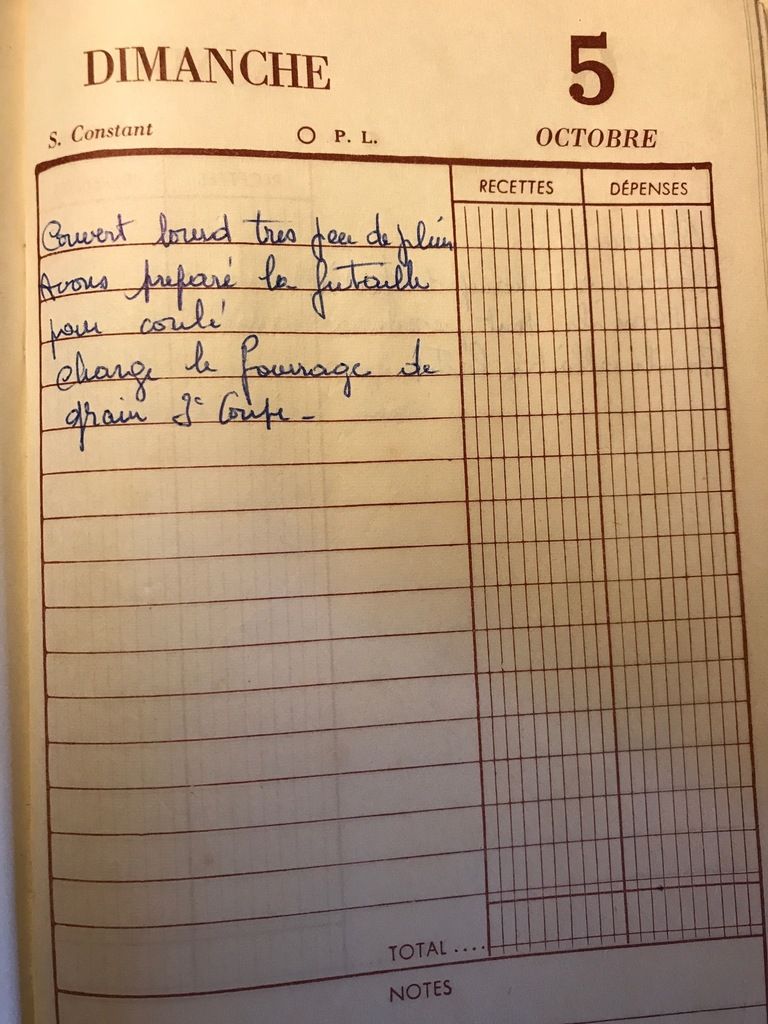 DIMANCHE 5
S. Constant O P. L. OCTOBRE
RECETTES DÉPENSES
Couvert lourd tres peu de pluie
Avons preparé la futaille
pour coulé
Charge le fourrage de
grain 3e Coupe -
TOTAL ....
NOTES